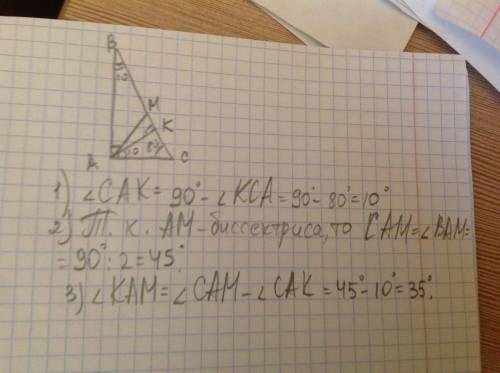 B
10
M
K
A 10 80 C
1) ∠CAK = 90° - ∠KCA = 90° - 80° = 10°
2) Т. к. AM - биссектриса, то CAM = ∠BAM =
= 90° : 2 = 45°.
3) ∠KAM = ∠CAM - ∠CAK = 45° - 10° = 35°.